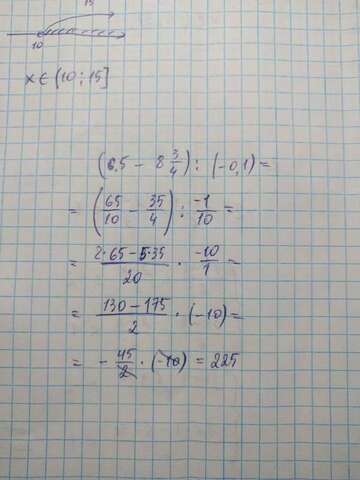 15
10
x ∈ (10; 15]
(6,5 - 8 3/4) : (-0,1) =
= (65/10 - 35/4) : -1/10 =
= 2·65-5·35/20 · -10/1 =
= 130-175/2 · (-10) =
= - 45/2 · (-10) = 225